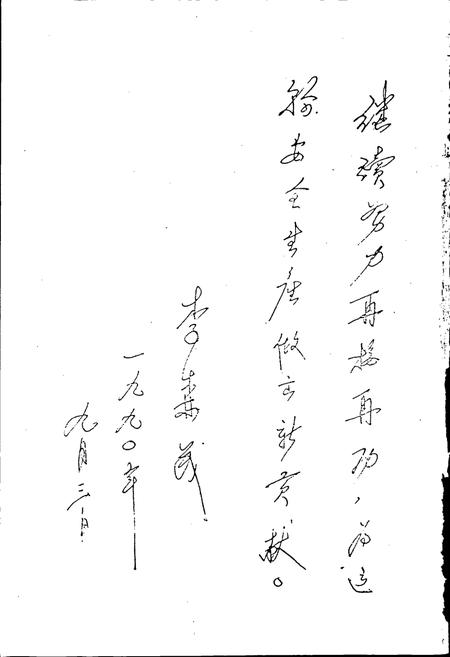 继续努力再接再励,为运
输安全生产做出新贡献。
李森茂
一九九〇年
九月三日